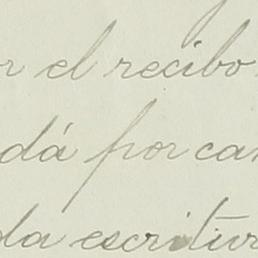 r el recibo
dá por ca
da escritur